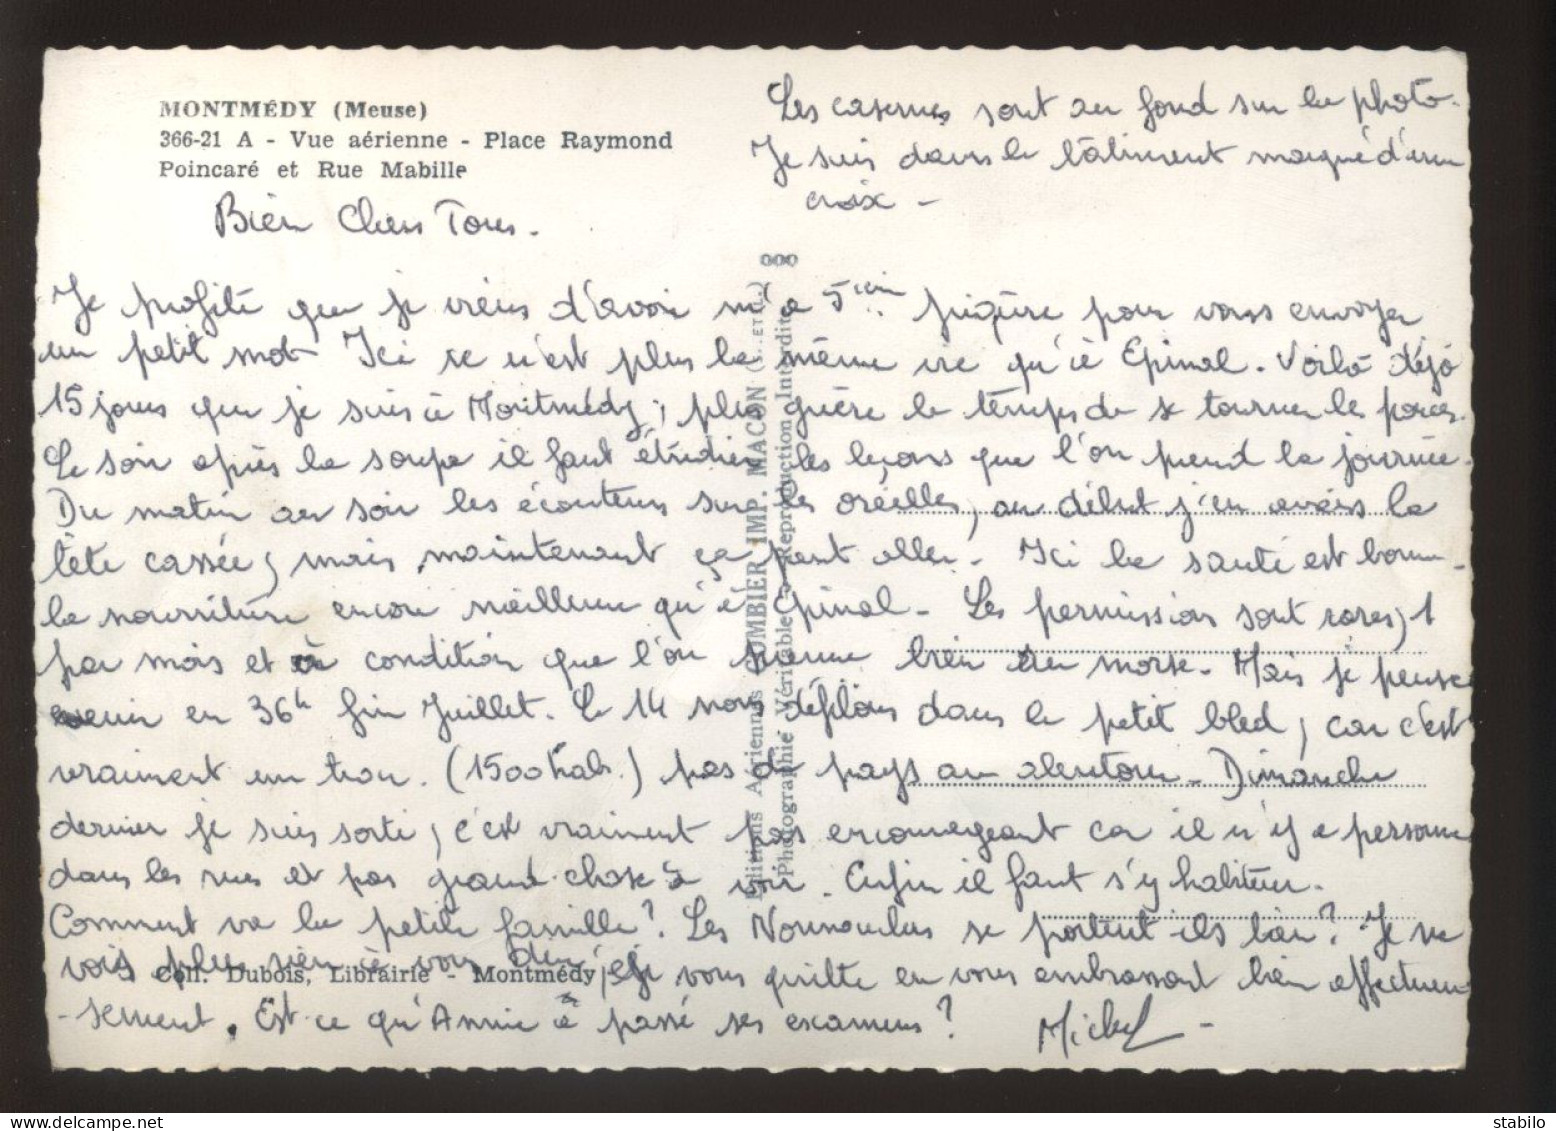 MONTMÉDY (Meuse)
366-21 A - Vue aérienne - Place Raymond
Poincaré et Rue Mabille
Les casernes sont au fond sur la photo.
Je suis dans le bâtiment marqué d'une
croix -
Bien Chers Tous.
Je profite que je viens d'avoir ma 5ième piqûre pour vous envoyer
un petit mot. Ici ce n'est plus la même vie qu'à Epinal. Voilà déjà
15 jours que je suis à Montmédy, plus guère le temps de se tourner les pouces.
Le soir après la soupe il faut étudier les leçons que l'on prend la journée.
Du matin au soir les écouteurs sur les oreilles, au début j'en avais la
tête cassée, mais maintenant ça peut aller. Ici la santé est bonne.
la nourriture encore meilleure qu'à Epinal. Les permissions sont rares, 1
par mois et à condition que l'on prenne bien au morse. Mais je pense
venir en 36h fin Juillet. Le 14 nous défilons dans le petit bled, car c'est
vraiment un trou. (1500 hab.) pas de pays au alentour. Dimanche
dernier je suis sorti, c'est vraiment pas encourageant car il n'y a personne
dans les rues et pas grand chose à voir. Enfin il faut s'y habituer.
Comment va la petite famille? Les se portent ils bien? Je ne
vois plus rien à vous dire, Je vous quitte en vous embrassant bien affectueu
-sement. Est ce qu'Annie a passé ses examens? Michel -
Coll. Dubois, Librairie - Montmédy
Editions Aériennes COMBIER IMP. MACON (S.-ET-L.)
Photographie Véritable - Reproduction Interdite
stabilo